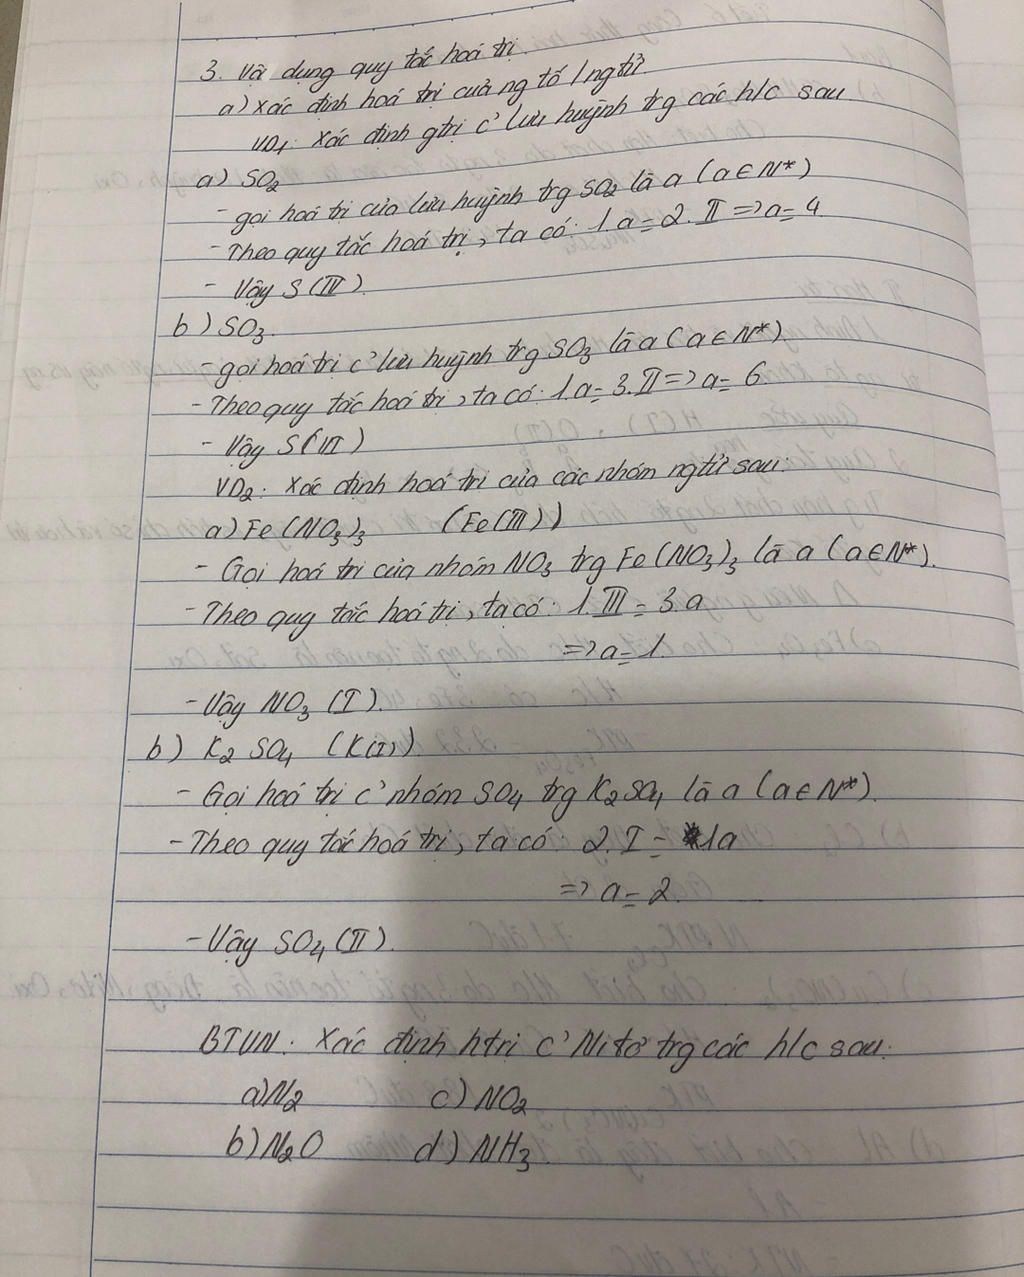 3. Vận dụng quy tắc hoá trị.
a) Xác định hoá trị của ng tố / ng tử.
VD1: Xác định gtrị c' lưu huỳnh trg các h/c sau
a) SO2
- gọi hoá trị của lưu huỳnh trg SO2 là a (a ∈ N*)
- Theo quy tắc hoá trị, ta có: 1.a = 2.II => a = 4
- Vậy S (IV)
b) SO3.
- gọi hoá trị c' lưu huỳnh trg SO3 là a (a ∈ N*)
- Theo quy tắc hoá trị, ta có: 1.a = 3.II => a = 6
- Vậy S (VI)
VD2: Xác định hoá trị của các nhóm ng tử sau:
a) Fe(NO3)3 (Fe(III))
- Gọi hoá trị của nhóm NO3 trg Fe(NO3)3 là a (a ∈ N*).
- Theo quy tắc hoá trị, ta có: 1.III = 3.a
=> a = 1.
- Vậy NO3 (I).
b) K2SO4 (K(I))
- Gọi hoá trị c' nhóm SO4 trg K2SO4 là a (a ∈ N*).
- Theo quy tắc hoá trị, ta có: 2.I = 1a
=> a = 2.
- Vậy SO4 (II).
BTVN: Xác định htrị c' Nitơ trg các h/c sau:
a) N2 c) NO2
b) N2O d) NH3.